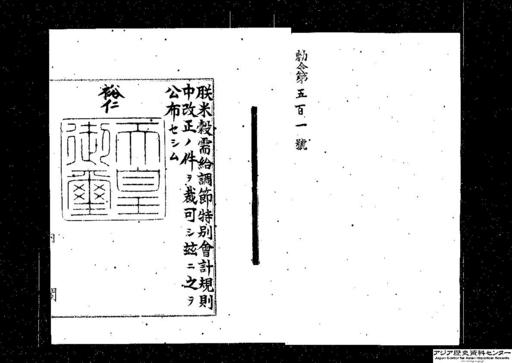 勅令第五百一號
朕米穀需給調節特別會計規則
中改正ノ件ヲ裁可シ玆ニ之ヲ
公布セシム
裕仁
天皇
御璽
内閣
アジア歴史資料センター
Japan Center for Asian Historical Records